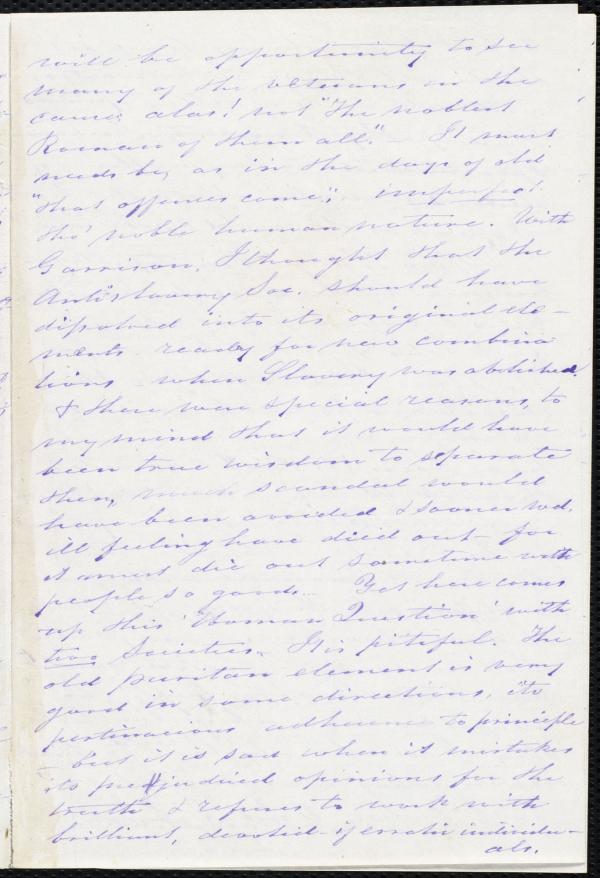 will be opportunity to see
many of the veterans in the
cause alas! not "the noblest
Roman of them all." — It must
needs be, as in the days of old
"that offences come";
tho' noble human nature. With
Garrison, I thought that the
Antislavery Soc. should have
dissolved into its original ele-
ments ready for new combina
tions – when Slavery was abolished.
& there were special reasons, to
my mind that it would have
been true wisdom to separate
then, much scandal would
have been avoided & sooner wd.
ill feeling have died out – for
it must die out sometime with
people so good... Yet here comes
up this 'Woman Question' with
two Societies. It is pitiful. The
old puritan element is very
good in some directions, its
pertinacious adherence to principle
but it is sad when it mistakes
its prejudiced opinions for the
truth & refuses to work with
brilliant, devoted – if erratic individu-
als.